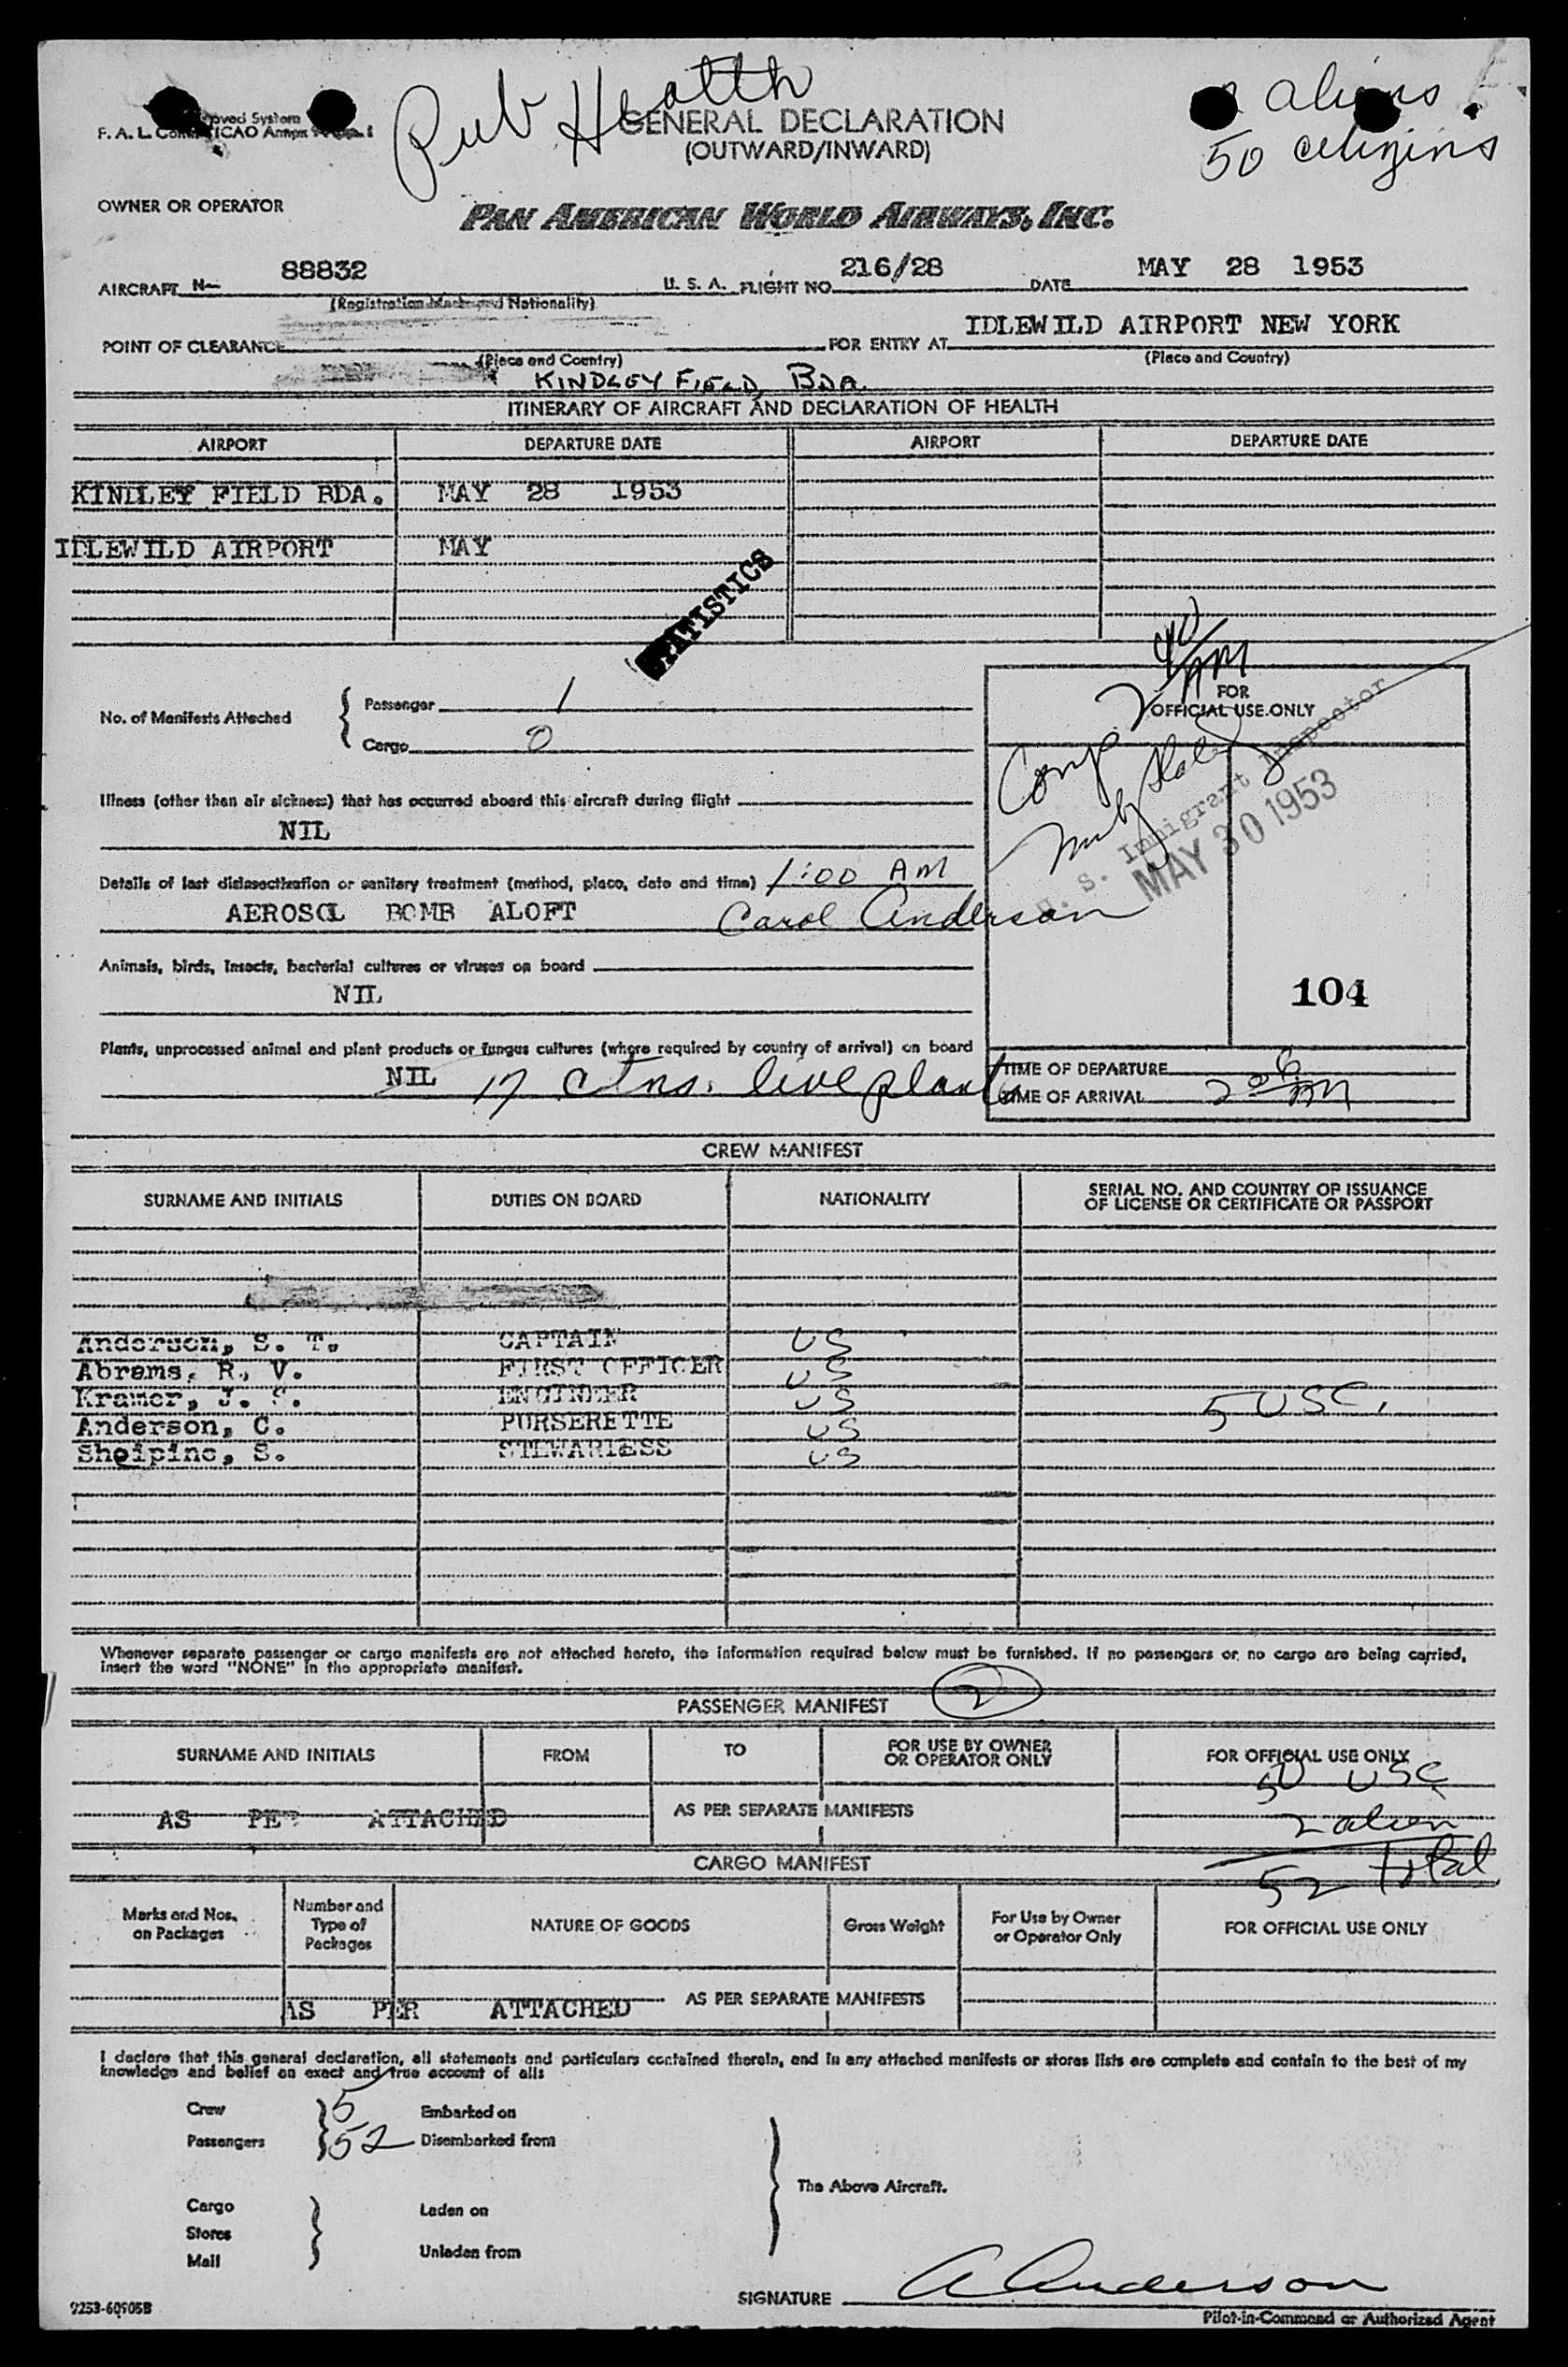 Pub Health
aliens
50 citizins
F. A. L.
GENERAL DECLARATION
(OUTWARD/INWARD)
OWNER OR OPERATOR
PAN AMERICAN WORLD AIRWAYS, INC.
AIRCRAFT N- 88832 U. S. A. FLIGHT NO. 216/28 DATE MAY 28 1953
(Registration Marks and Nationality)
POINT OF CLEARANCE FOR ENTRY AT IDLEWILD AIRPORT NEW YORK
(Place and Country) (Place and Country)
KINDLEY FIELD, BDA.
ITINERARY OF AIRCRAFT AND DECLARATION OF HEALTH
AIRPORT DEPARTURE DATE AIRPORT DEPARTURE DATE
KINDLEY FIELD BDA. MAY 28 1953
IDLEWILD AIRPORT MAY
STATISTICS
No. of Manifests Attached
Passenger 1
Cargo 0
FOR
OFFICIAL USE ONLY
2 40/AM
Comp
U. S. Immigrant Inspector
MAY 30 1953
Illness (other than air sickness) that has occurred aboard this aircraft during flight
NIL
Details of last disinsectization or sanitary treatment (method, place, date and time) 1:00 AM
AEROSOL BOMB ALOFT Carol Anderson
Animals, birds, insects, bacterial cultures or viruses on board
NIL
104
Plants, unprocessed animal and plant products or fungus cultures (where required by country of arrival) on board
NIL 17 ctns. live plants
TIME OF DEPARTURE
TIME OF ARRIVAL 2 06 AM
CREW MANIFEST
SURNAME AND INITIALS DUTIES ON BOARD NATIONALITY SERIAL NO. AND COUNTRY OF ISSUANCE
OF LICENSE OR CERTIFICATE OR PASSPORT
Anderson, S. T. CAPTAIN US
Abrams, R. V. FIRST OFFICER US
Kramer, J. S. ENGINEER US 5 USC.
Anderson, C. PURSERETTE US
Sheipino, S. STEWARDESS US
Whenever separate passenger or cargo manifests are not attached hereto, the information required below must be furnished. If no passengers or no cargo are being carried,
insert the word "NONE" in the appropriate manifest.
PASSENGER MANIFEST 2
SURNAME AND INITIALS FROM TO FOR USE BY OWNER
OR OPERATOR ONLY FOR OFFICIAL USE ONLY
50 USC
AS PER ATTACHED AS PER SEPARATE MANIFESTS 2 alien
52 total
CARGO MANIFEST
Marks and Nos. on Packages Number and Type of Packages NATURE OF GOODS Gross Weight For Use by Owner or Operator Only FOR OFFICIAL USE ONLY
AS PER ATTACHED AS PER SEPARATE MANIFESTS
I declare that this general declaration, all statements and particulars contained therein, and in any attached manifests or stores lists are complete and contain to the best of my
knowledge and belief an exact and true account of all:
Crew 5 Embarked on
Passengers 52 Disembarked from
The Above Aircraft.
Cargo Laden on
Stores
Mail Unladen from
SIGNATURE A Anderson
Pilot-in-Command or Authorized Agent
9253-60905B